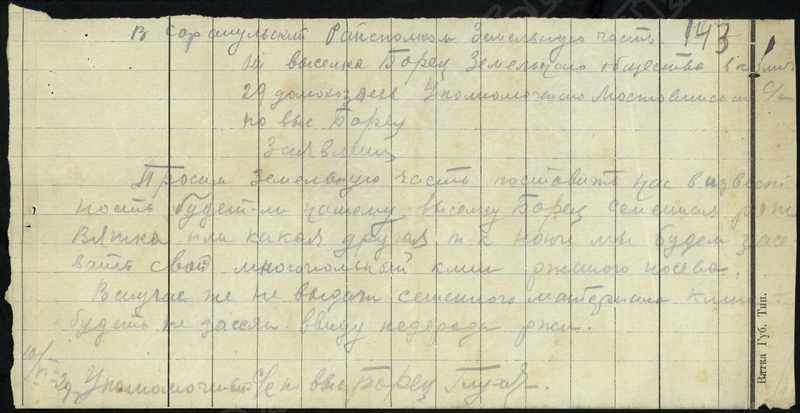 В Сарапульский Райсполком Земельную часть 143
выселка Борец Земельного общества в колич
29 домохозяев Уполномоченого
по выс Борец
Заявлении
Просим Земельную часть поставить нас в извест
ность будет-ли нашему выселку Борец семенная рож
Вятка или какая другая т к ныне мы будем засе
вать свой многопольный клин ржаного посева.
В случае же не выдачи семенного материала клин
будет не засеян ввиду недорода ржи.
Уполномоченый по выс Борец
Вятка Губ. Тип.